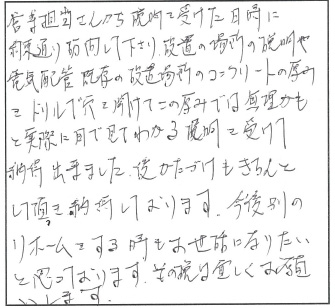 営業担当さんから説明を受けた日時に
約束通り訪問して下さり設置の場所の説明や
電気配管既存の設置場所のコンクリートの厚み
をドリルで穴を開けてこの厚みでは無理かも
と実際に目で見てわかる説明を受けて
納得出来ました。後かたづけもきちんと
して頂き納得しております。今後別の
リホームをする時もお世話になりたい
と思っております。その節は宜しくお願
いします。